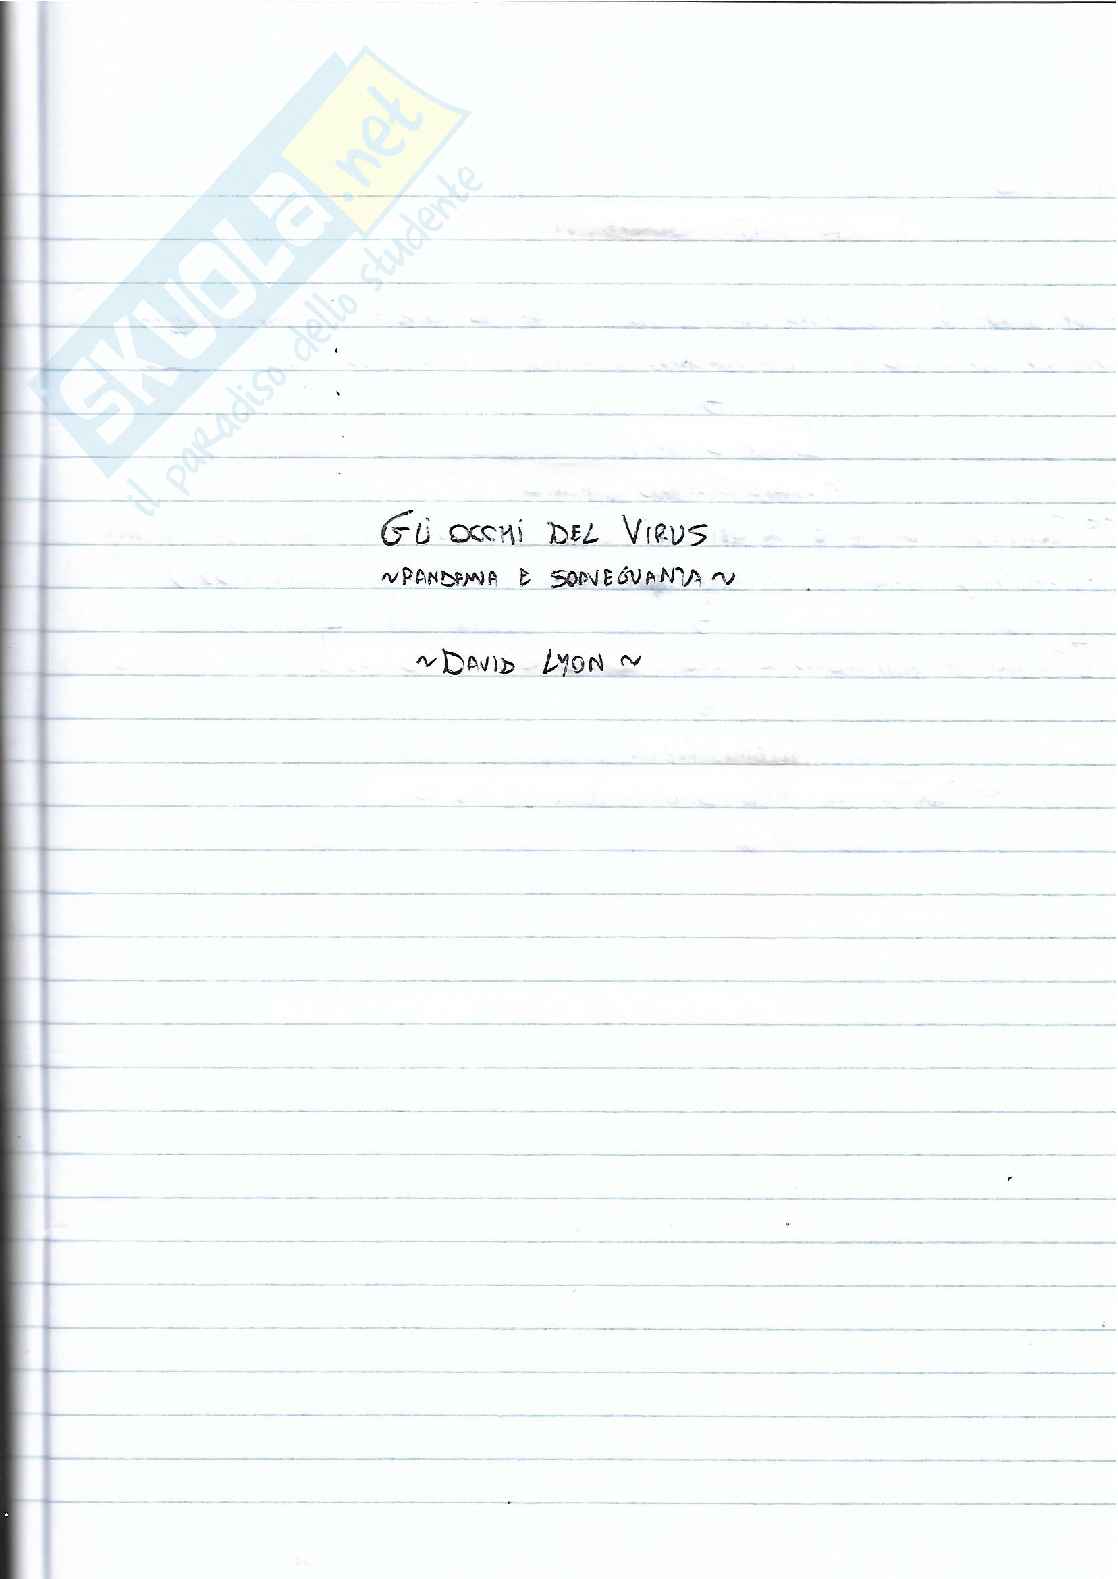 SKUOLA.net
il paradiso dello studente
GLI OCCHI DEL VIRUS
~PANDEMIA E SORVEGLIANZA~
~DAVID LYON~